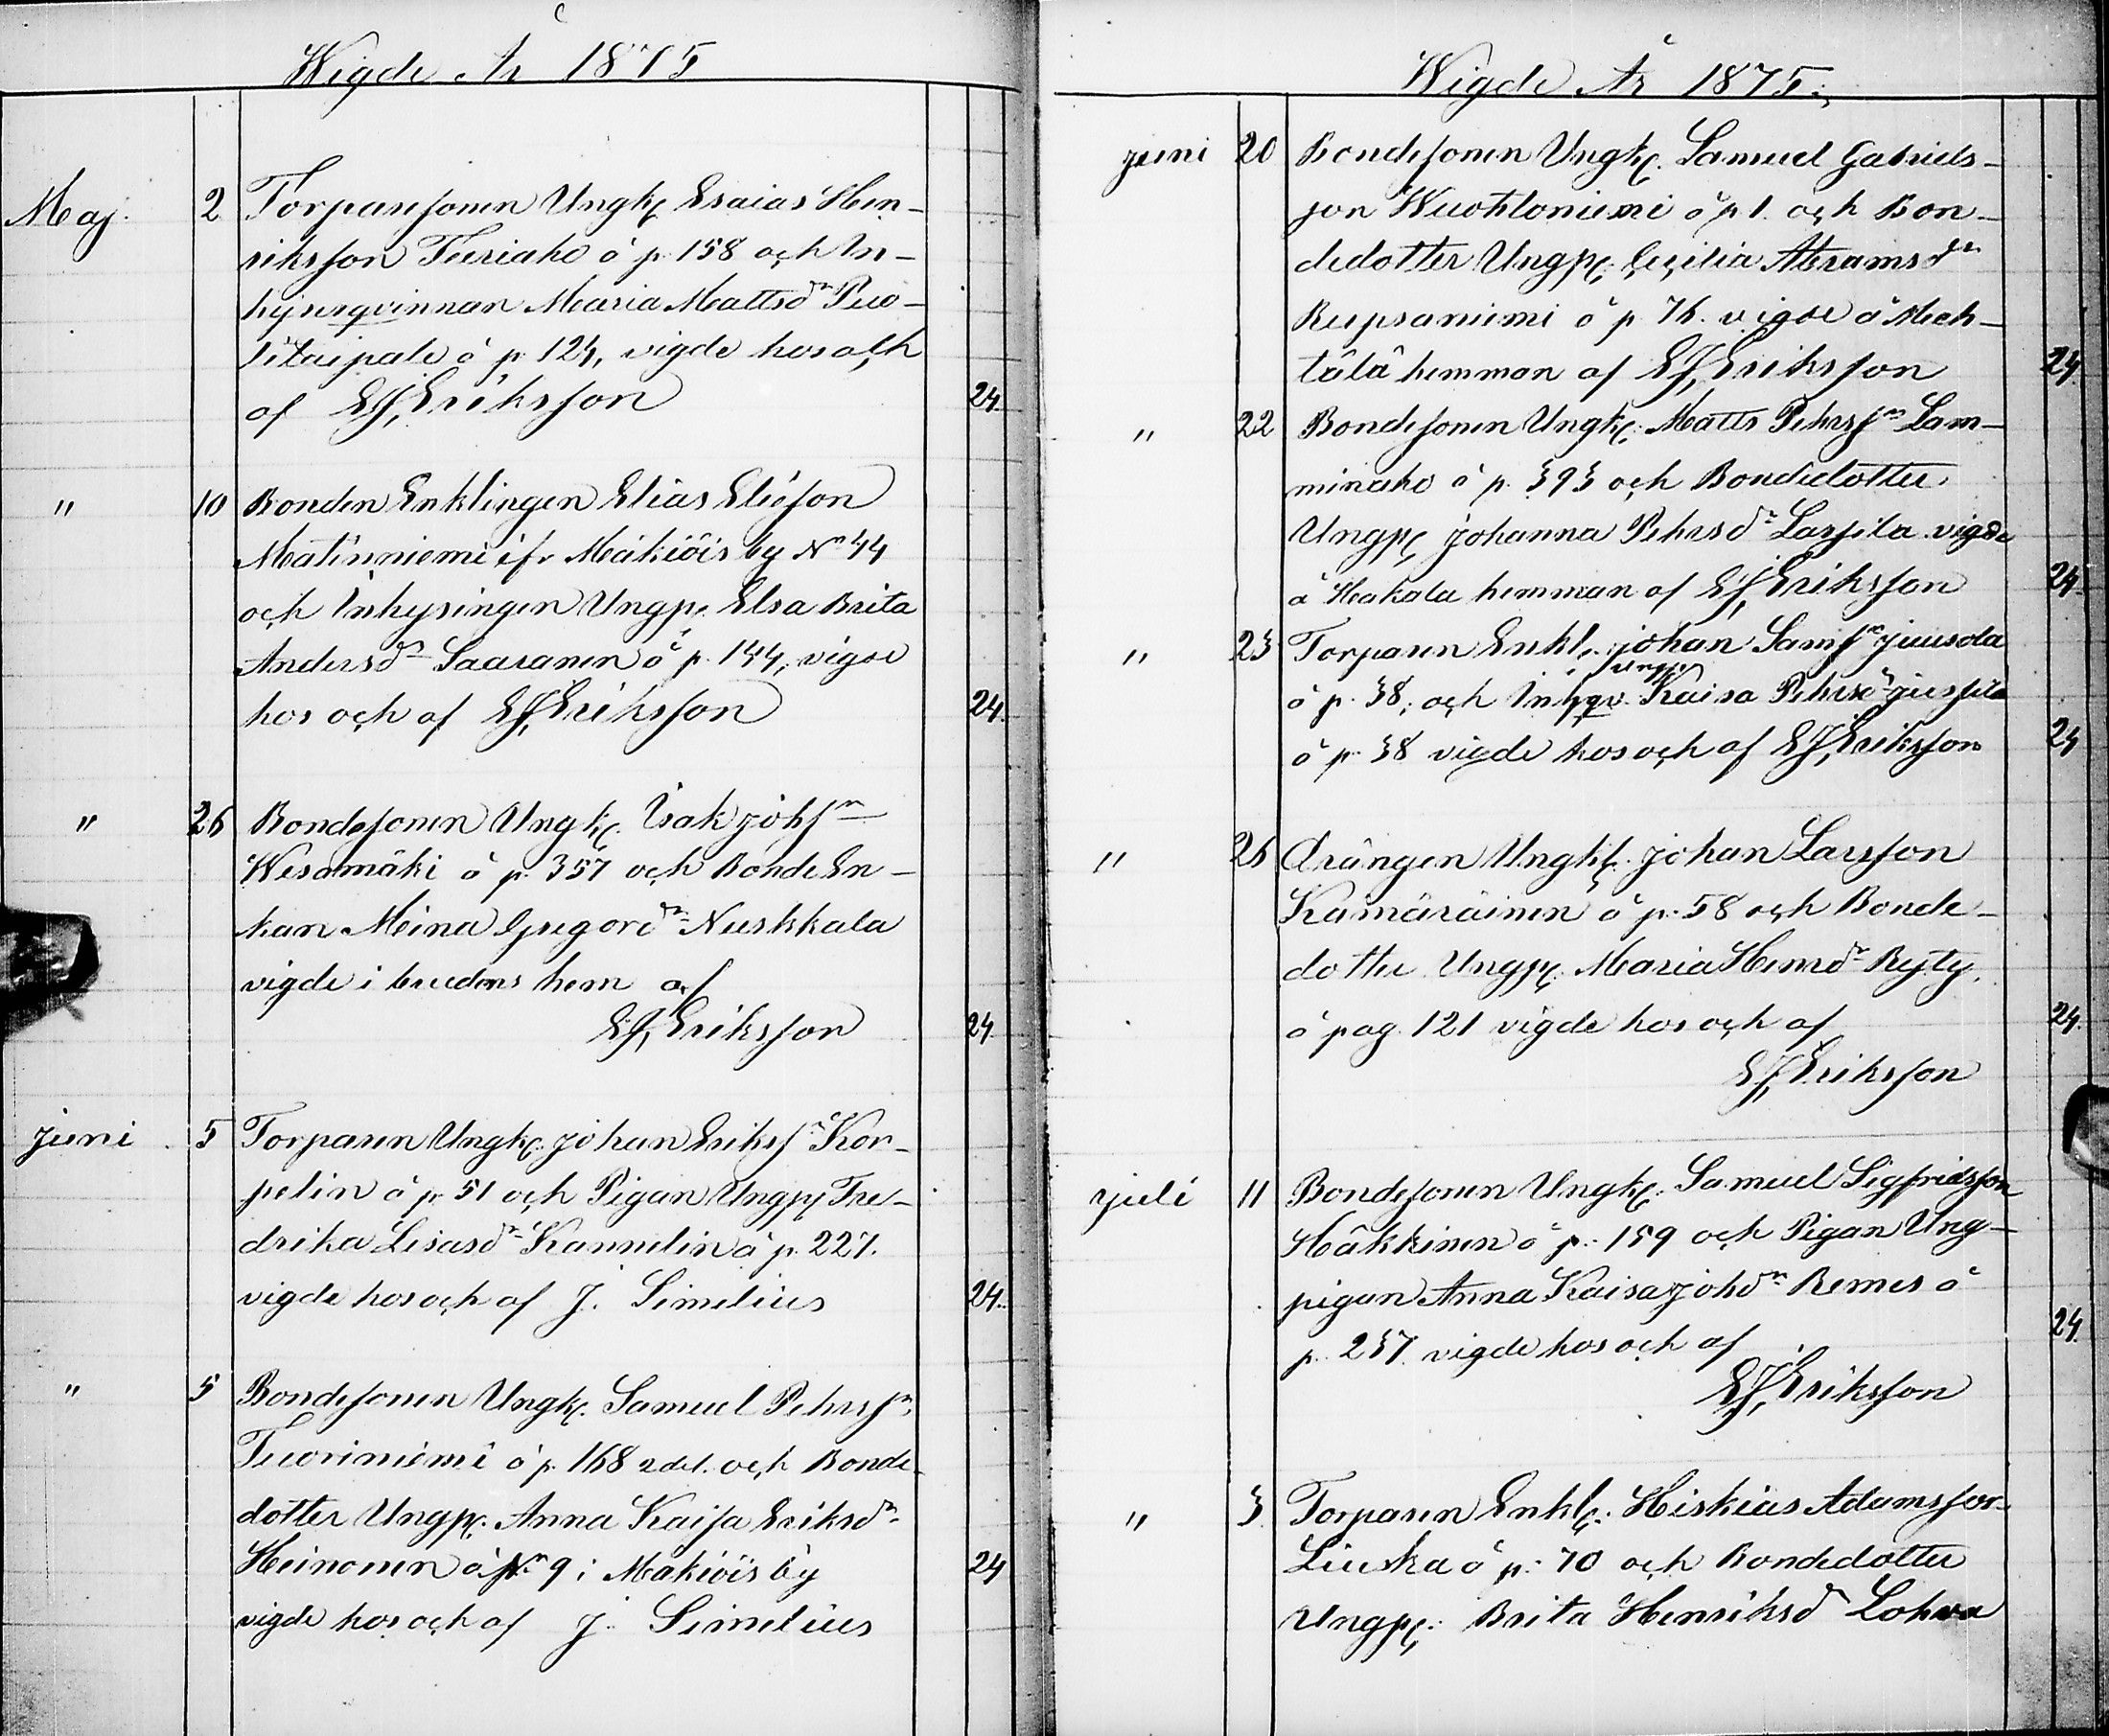 Wigde År 1875
Maj. 2 Torparesonen Ungk. Esaias Hen-
riksson Turiaho å p. 158 och In-
hysesqvinnan Maria Mattsdr Puo-
litaipale å p. 124, vigde hos och
af EJ, Eriksson 24.
" 10 Bonden Enklingen Elias Eliäson
Matinniemi ifr. Mäkiöis by No 44
och Inhysingen Ungp. Elsa Brita
Andersdr Saaranen å p. 144, vigde
hos och af EJ, Eriksson 24.
" 26 Bondesonen Ungk. Isak Johsn
Wesamäki å p. 357 och Bonde En-
kan Meina Gregordr Nuskkala
vigde i brudens hem af
EJ, Eriksson 24.
Juni 5 Torparen Ungk. Johan Erikssn Kor-
pelin å p. 51 och Pigan Ungp. Fre-
drika Lisasdr Kannelin å p. 227.
vigde hos och af J. Simelius 24.
" 5 Bondesonen Ungk. Samuel Pehrssn
Tuoriniemi å p. 168 2 del. och Bonde-
dotter Ungp. Anna Kaisa Eriksdr
Heinonen å No 9 i Mäkiöis by 24
vigde hos och af J. Simelius
Wigde År 1875.
Juni 20 Bondesonen Ungk. Samuel Gabriels-
son Wuohtoniemi å p 1. och Bon-
dedotter Ungp. Cecilia Abramsdr
Rupsaniemi å p. 76. vigde å Mech-
tälä hemman af EJ, Eriksson 24.
" 22 Bondesonen Ungk. Matts Pehrssn Lam-
minaho å p. 393 och Bondedotter
Ungp. Johanna Pehrsdr Lassila vigde
å Heakala hemman af EJ, Eriksson 24.
" 23 Torparen Enkl. Johan Samsn Juusola
Ungp.
å p. 38, och Inhqv. Kaisa Pehrsdr Jussila
å p. 38 vigde hos och af EJ, Eriksson 24
" 26 Drängen Ungk. Johan Larsson
Kämäräinen å p. 58 och Bonde-
dotter Ungp. Maria Hemdr Ryty.
å pag. 121 vigde hos och af 24.
EJ, Eriksson
Juli 11 Bondesonen Ungk. Samuel Sigfridsson
Häkkinen å p. 159 och Pigan Ung-
pigan Anna Kaisa Johdr Remes å
p. 237. vigde hos och af 24.
EJ, Eriksson
" 3. Torparen Enkl. Hiskias Adamsson
Liuska å p. 70 och Bondedotter
Ungp. Brita Henriksdr Lohva